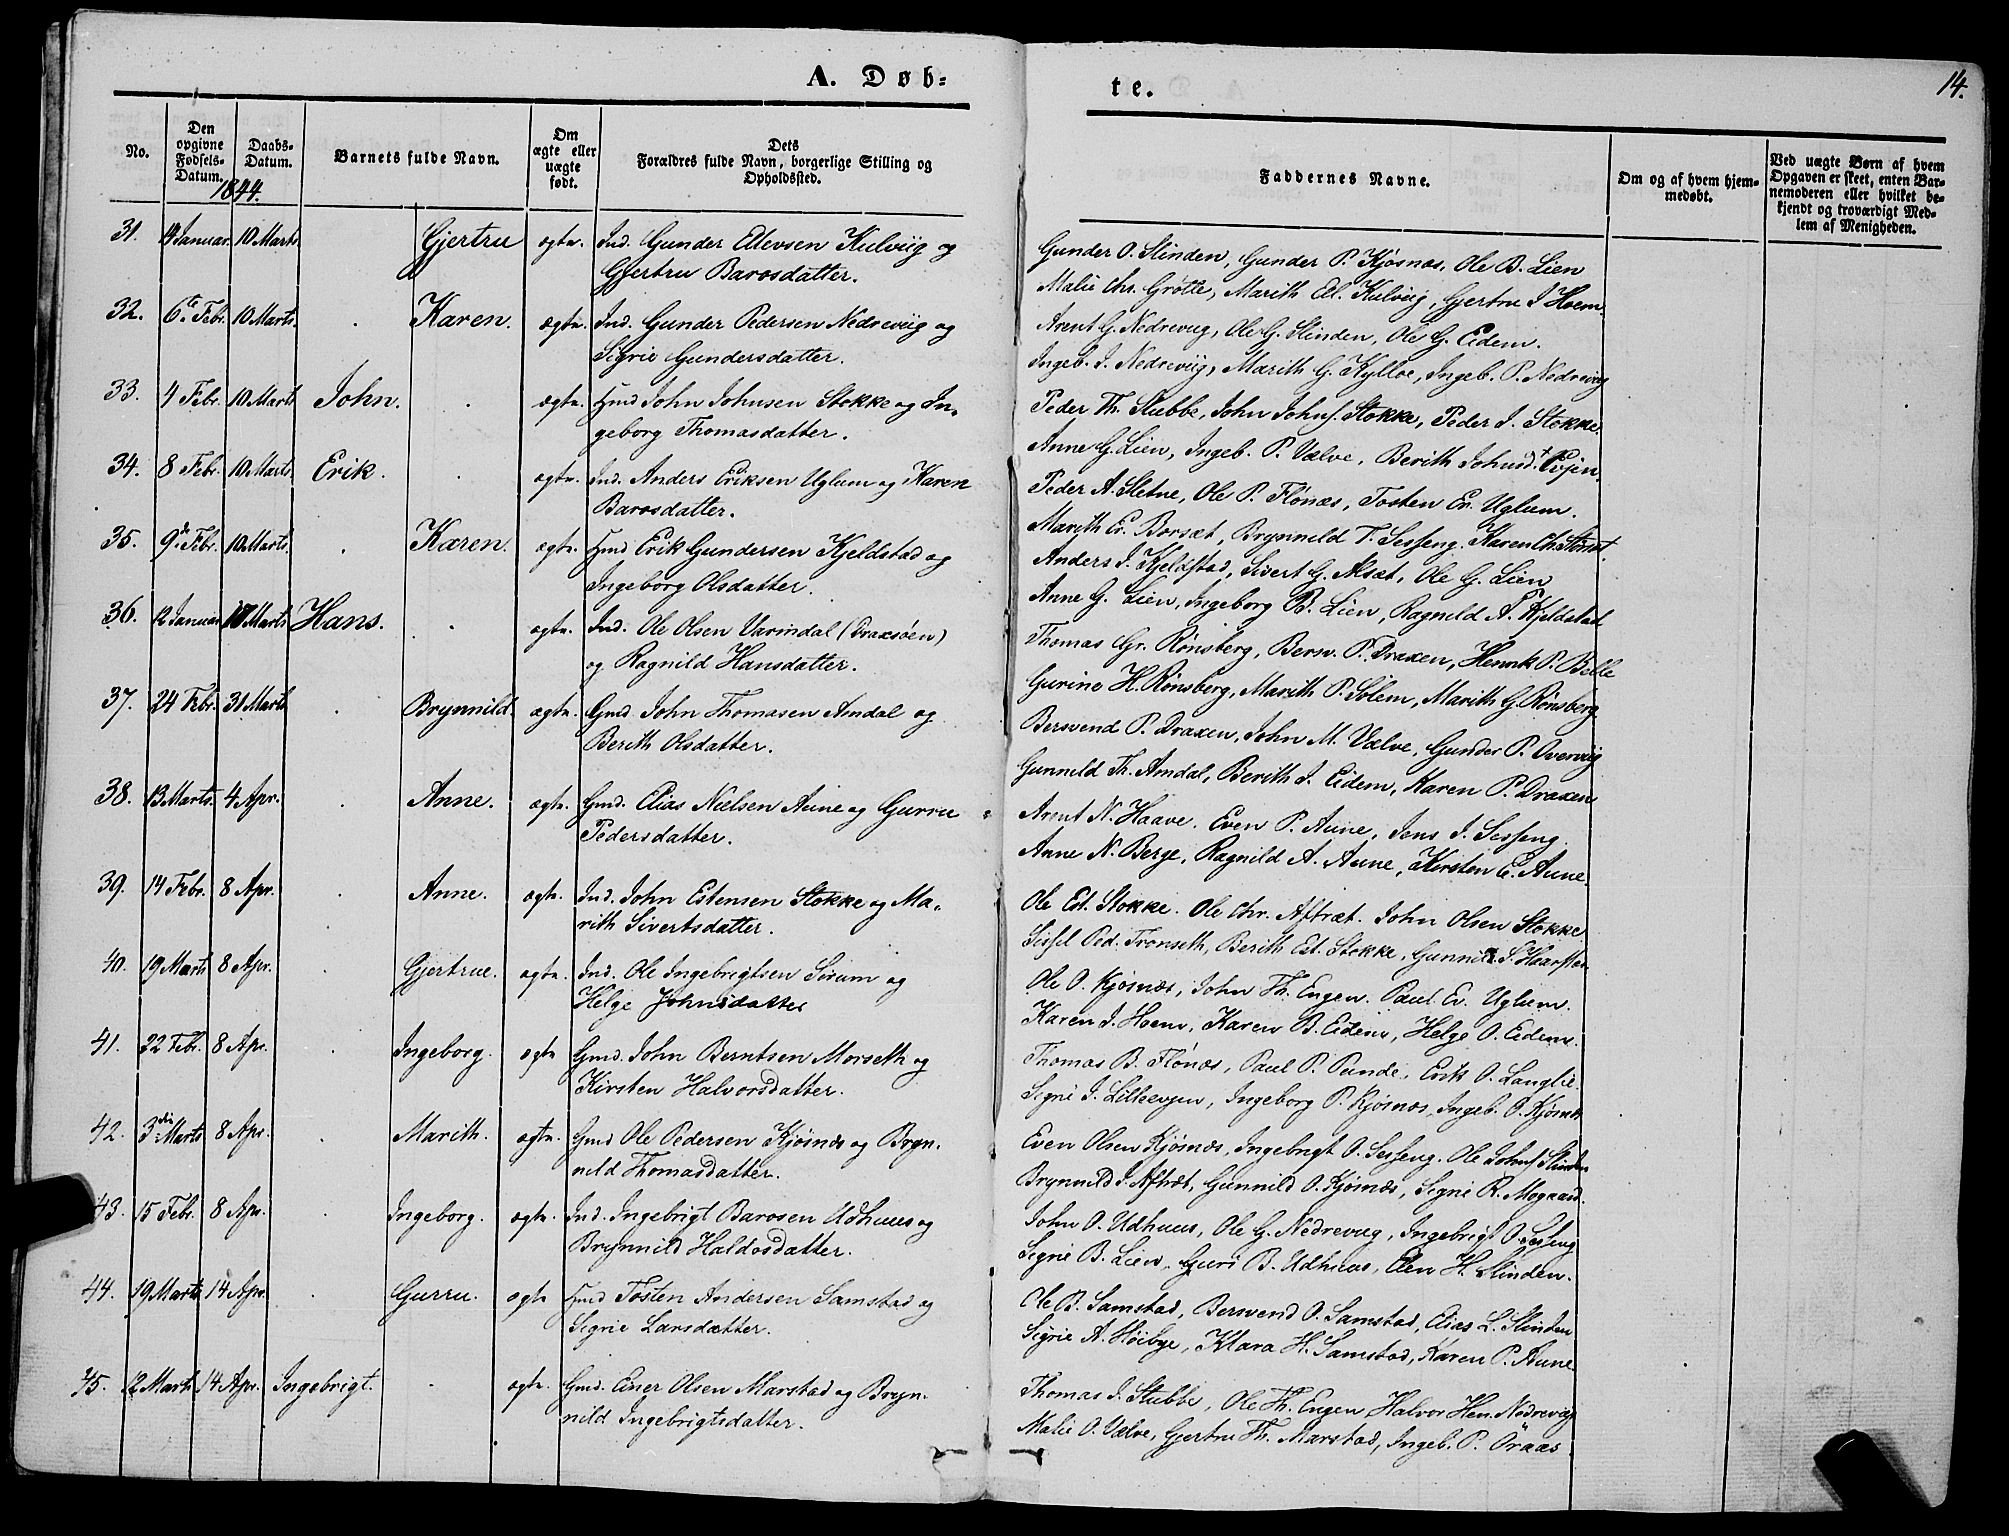 A. Døb=
te.
14.
No.
Den opgivne Fødsels-Datum.
Daabs-Datum.
Barnets fulde Navn.
Om ægte eller uægte født.
Dets Forældres fulde Navn, borgerlige Stilling og Opholdssted.
Faddernes Navne.
Om og af hvem hjem-medøbt.
Ved uægte Børn af hvem Opgaven er skeet, enten Bar-nemoderen eller hvilket be-kjendt og troværdigt Med-lem af Menigheden.
1844.
31. Januar. 10 Marts Gjertru ægte. Ind. Gunder Edevsen Kulviig og
Gjertru Barosdatter.
Gunder O. Slinden, Gunder P. Kjøsnæs, Ole B. Lien
Malie Chr. Grøtte, Marith Ed. Kulviig, Gjertru J Hoem.
32. 6te Febr. 10 Marts. Karen. ægte. Ind. Gunder Pedersen Nedreviig og
Sigrie Gundersdatter.
Arent G. Nedrevug, Ole G. Slinden, Ole G. Eidem.
Ingeb. J. Nedreviig, Marith G. Kylloe, Ingeb. P. Nedreviig
33. 4 Febr. 10 Marts John. ægte. Hmd John Johnsen Stokke og In-
geborg Thomasdatter.
Peder Th. Stubbe, John Johns. Stokke, Peder J. Stokke.
Anne G. Lien, Ingeb. P. Vælve, Berith Johnsd. Evjen.
34. 8 Febr. 10 Marts Erik. ægte. Ind. Anders Eriksen Uglum og Karen
Barosdatter.
Peder A. Sletne, Ole P. Flønæs, Tosten Er. Uglum.
Marith Er. Borsæt, Brynnild T. Sesseng. Karen Ch.
35. 9de Febr. 10 Marts. Karen. ægte. Hmd Erik Gundersen Kjeldstad og
Ingeborg Olsdatter.
Anders J. Kjeldstad, Sivert G. Alsæt, Ole G. Lien
Anne G. Lien, Ingeborg B. Lien, Ragnild A. Kjeldstad
36. 12 Januar Marts Hans. ægte. Ind. Ole Olsen Varindal (Draxsøen)
og Ragnild Hansdatter.
Thomas Gr. Rønsberg, Bersv. P. Draxen, Henrik P. Belle
Gurine H. Rønsberg, Marith P. Solem, Marith G. Rønsberg
37. 24 Febr. 31 Marts Brynnild. ægte. Gmd. John Thomasen Amdal og
Berith Olsdatter.
Bersvend P. Draxen, John M. Vælve, Gunder P. Overviig
Gunnild Th. Amdal, Berith J. Eidem, Karen P. Draxen
38. 13 Marts. 4 Apr. Anne. ægte. Gmd. Elias Nielsen Aune og Gurru
Pedersdatter.
Arent N. Haave. Even P. Aune, Jens J. Sesseng.
Anne N. Berge, Ragnild A. Aune, Kirsten E. Aune.
39. 14 Febr. 8 Apr. Anne. ægte. Ind. John Estensen Stokke og Ma-
rith Sivertsdatter.
Ole Est. Stokke. Ole Chr. Aftræt. John Olsen Stokke
Sissel Ped. Tronseth, Berith Est. Stokke,
40. 19 Marts 8 Apr. Gjertrue. ægte. Ind. Ole Ingebrigtsen Sirum og
Helge Johnsdatter
Ole O. Kjøsnæs, John Th. Engen. Paul Ev. Uglum.
Karen J. Hoem, Karen B. Eidem, Helge O. Eidem.
41. 22 Febr. 8 Apr. Ingeborg. ægte Gmd. John Berntsen Morseth og
Kirsten Halvorsdatter.
Thomas B. Flønæs, Paul P. Punde, Erik O. Langlie.
Signe J. Lilleevjen, Ingeborg P. Kjøsnæs, Ingeb. O. Kjøsnæs
42. 3die Marts 8 Apr. Marith. ægte. Gmd Ole Pedersen Kjøsnæs og Bryn-
nild Thomasdatter.
Even Olsen Kjøsnæs, Ingebrigt O. Sesseng. Ole Johns Slinden
Brynnild J. Aftræt, Gunnild O. Kjøsnæs, Signe R. Mogaard.
43. 15 Febr. 8 Apr. Ingeborg. ægte. Ind. Ingebrigt Barosen Udhuus og
Brynnild Haldosdatter.
John O. Udhuus, Ole G. Nedrevug, Ingebrigt O. Sesseng
Sigrie B. Lien, Guri B. Udhuus, Elen H. Slinden.
44. 19 Marts 14 Apr. Gurru. ægte Hmd Tosten Andersen Samstad og
Sigrie Larsdatter.
Ole B. Samstad, Bersvend O. Samstad, Elias L. Slinden
Sigrie A. Høibye, Klara H. Samstad, Karen P. Aune
45. 12 Marts 14 Apr. Ingebrigt. ægte. Gmd. Einer Olsen Marstad og Bryn-
nild Ingebrigtsdatter.
Thomas J. Stubbe, Ole Th. Engen Halvor Hen. Nedreviig
Malie O. Vælve, Gjertru Th. Marstad, Ingeb. P. Öraas.